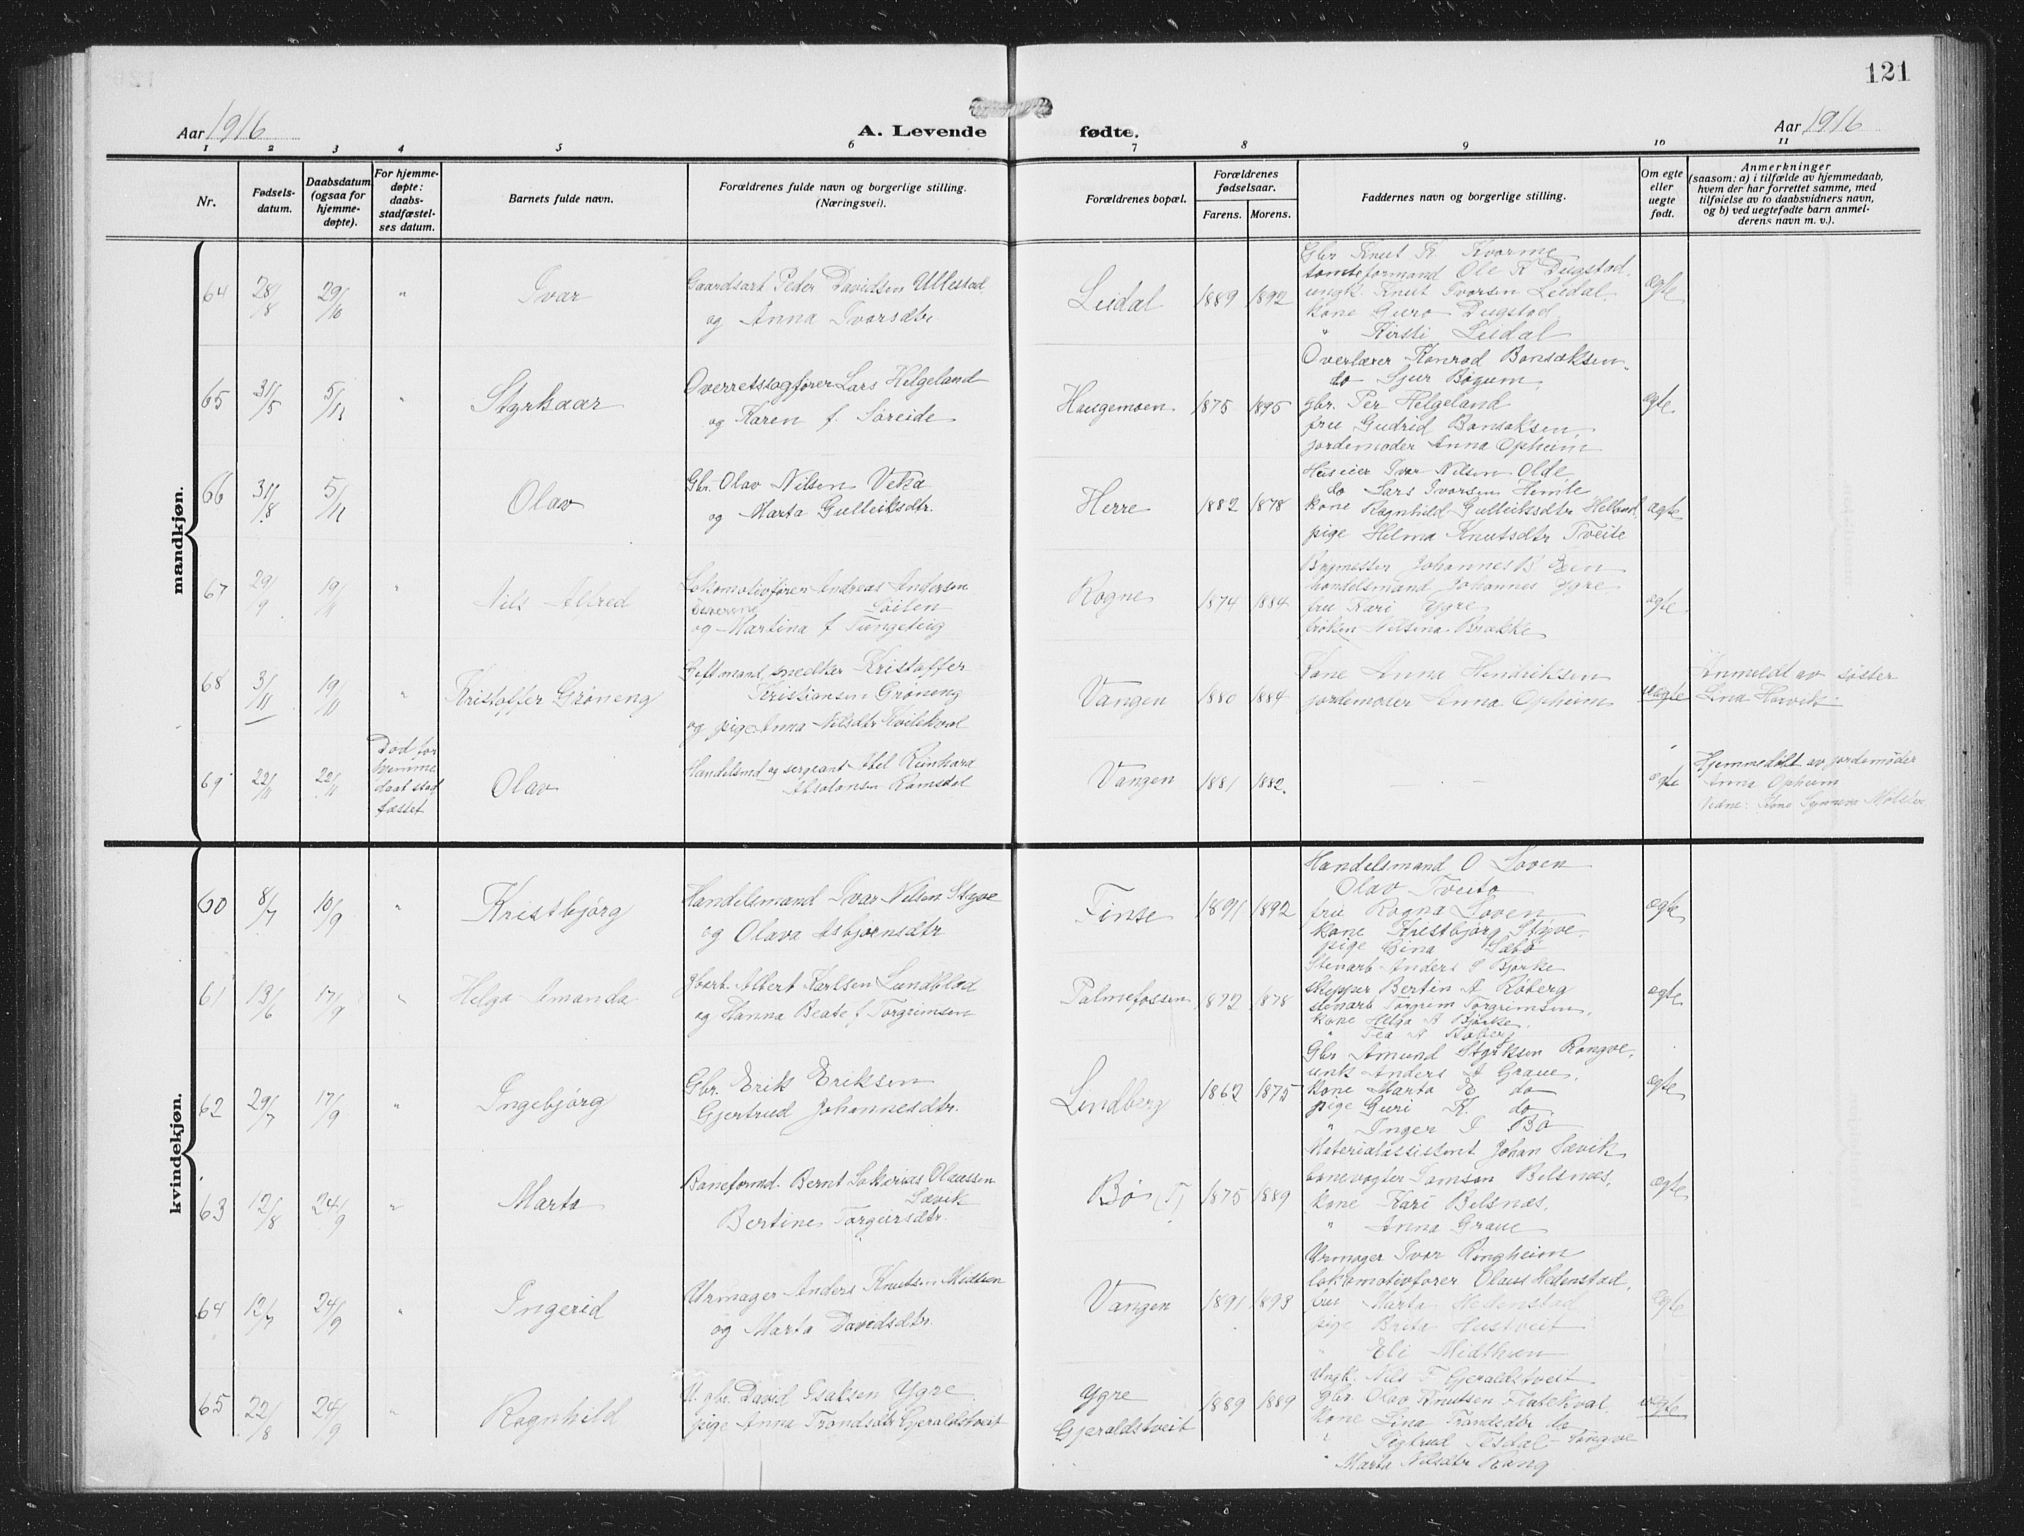 121
Aar 1916
A. Levende fødte.
Aar 1916
1 2 3 4 5 6 7 8 9 10 11
Nr.
Fødsels-
datum.
Daabsdatum
(ogsaa for
hjemme-
døpte).
For hjemme-
døpte:
daabs-
stadfæstel-
ses datum.
Barnets fulde navn.
Forældrenes fulde navn og borgerlige stilling.
(Næringsvei).
Forældrenes bopæl.
Forældrenes
fødselsaar.
Farens. Morens.
Faddernes navn og borgerlige stilling.
Om egte
eller
uegte
født.
Anmerkninger
(saasom: a) i tilfælde av hjemmedaab,
hvem der har forrettet samme, med
tilføielse av to daabsvidners navn,
og b) ved uegtefødte barn anmel-
derens navn m. v.).
mandkjøn.
64 28/8 29/10 " Ivar
Gaardsarb Peder Davidsen Ullestad
og Anna Ivarsdtr
Leidal 1889 1892
Gbr Knut K Kvarme
tomteformand Ole K Dugstad
ungk. Knut Ivarsen Leidal
kone Guro Dugstad
" Kirsti Leidal
ægte
65 31/5 5/11 " Styrkaar
Overretssagfører Lars Helgeland
og Karen f. Søreide
Haugemoen 1875 1895
Overlærer Konrad Bonsaksen
do Sjur Bøgum
gbr. Per Helgeland
fru Gudrid Bonsaksen
jordemoder Anna Opheim
egte
66 31/8 5/11 Olav
Gbr. Olav Nilsen Veka
og Marta Gulleiksdtr.
Herre 1882 1878
Huseier Ivar Nilsen Olde
do Lars Ivarsen Himle
kone Ragnhild Gulleiksdtr Helland
pige Helma Knutsdtr Tveite
ægte
67 29/9 19/11 " Nils Alfred
Lokomotivfører Andreas Andersen
Søilen
og Martina f Tungeteig
Rogne 1874 1884
Brymester Johannes B
handelsmand Johannes Ygre
fru Kari Ygre
frøken Nilsina Brække
egte
68 3/11 19/11 " Kristoffer Grøneng
Gift mand, snedker Kristoffer
Kristiansen Grøneng
og pige Anna Nilsdtr Kvilekval
Vangen 1880 1884
Kone Anna Hendriksen
jordemoder Anna Opheim
uegte
Anmeldt av søster
Lina
69 22/11 22/11
Død før
hjemme
daab stad
fæstet
Olav
Handelsmd og sergeant Abel Reinhard
Absalonsen Ramsdal
Vangen 1881 1882.
— —
egte
Hjemmedøbt av jordemoder
Anna Opheim
kvindekjøn.
60 8/7 10/9 " Kristbjørg
Handelsmand Ivar Nilsen Styve
og Olava Asbjørnsdtr
Finse 1891 1892
Handelsmand O Loven
Olav Tveito
fru Ragna Loven
kone Kristbjørg Styve
pige Gina Sæbø
ægte
61 13/6 17/9 " Helga Amanda
Jbarb. Albert Karlsen Lundblad
og Hanna Beate f Torgrimsen
Palmefossen 1872 1878
Stenarb Anders S Bjørke
skipper Bertin A Røberg
stenarb Torgrim Torgrimsen
kone Helga A Bjørke
" Tea A
egte
62 29/7 17/9 " Ingebjørg
Gbr. Erik Eriksen
Gjertrud Johannesdtr.
Lindberg 1862 1875
Gbr Amund Styrksen Rongve
unk Anders A Graue
kone Marta E do
pige Guri K. do
" Inger I Bø
ægte
63 12/8 24/9 " Marta
Baneformd. Bernt Sakarias Olaussen
Sævik
Bertine Torgeirsdtr.
Bø (T) 1875 1889
Materialassistent Johan Sævik
banevogter Samson Bilsnæs,
kone Kari Bilsnæs,
" Anna Graue
egte
64 12/7 24/9 " Ingerid
Urmager Anders Knutsen Midthun
og Marta Davidsdtr.
Vangen 1891 1893
Urmager Ivar Ringheim
lokomotivfører Olaus Hedenstad,
fru Marta Hedenstad
pige Brita Hustveit
" Eli Midthun
egte
65 22/8 24/9 " Ragnhild
U. gbr. David Isaksen Ygre
pige Anna Trondsdtr Gjeraldstveit
Ygre
Gjeraldstveit
1889 1889
Ungk. Nils T Gjeraldstveit
gbr. Olav Knutsen Flatekval
kone Lina Trondsdtr do
" Sigtrud Tesdal
" Marta Nilsdtr Rang
uegte